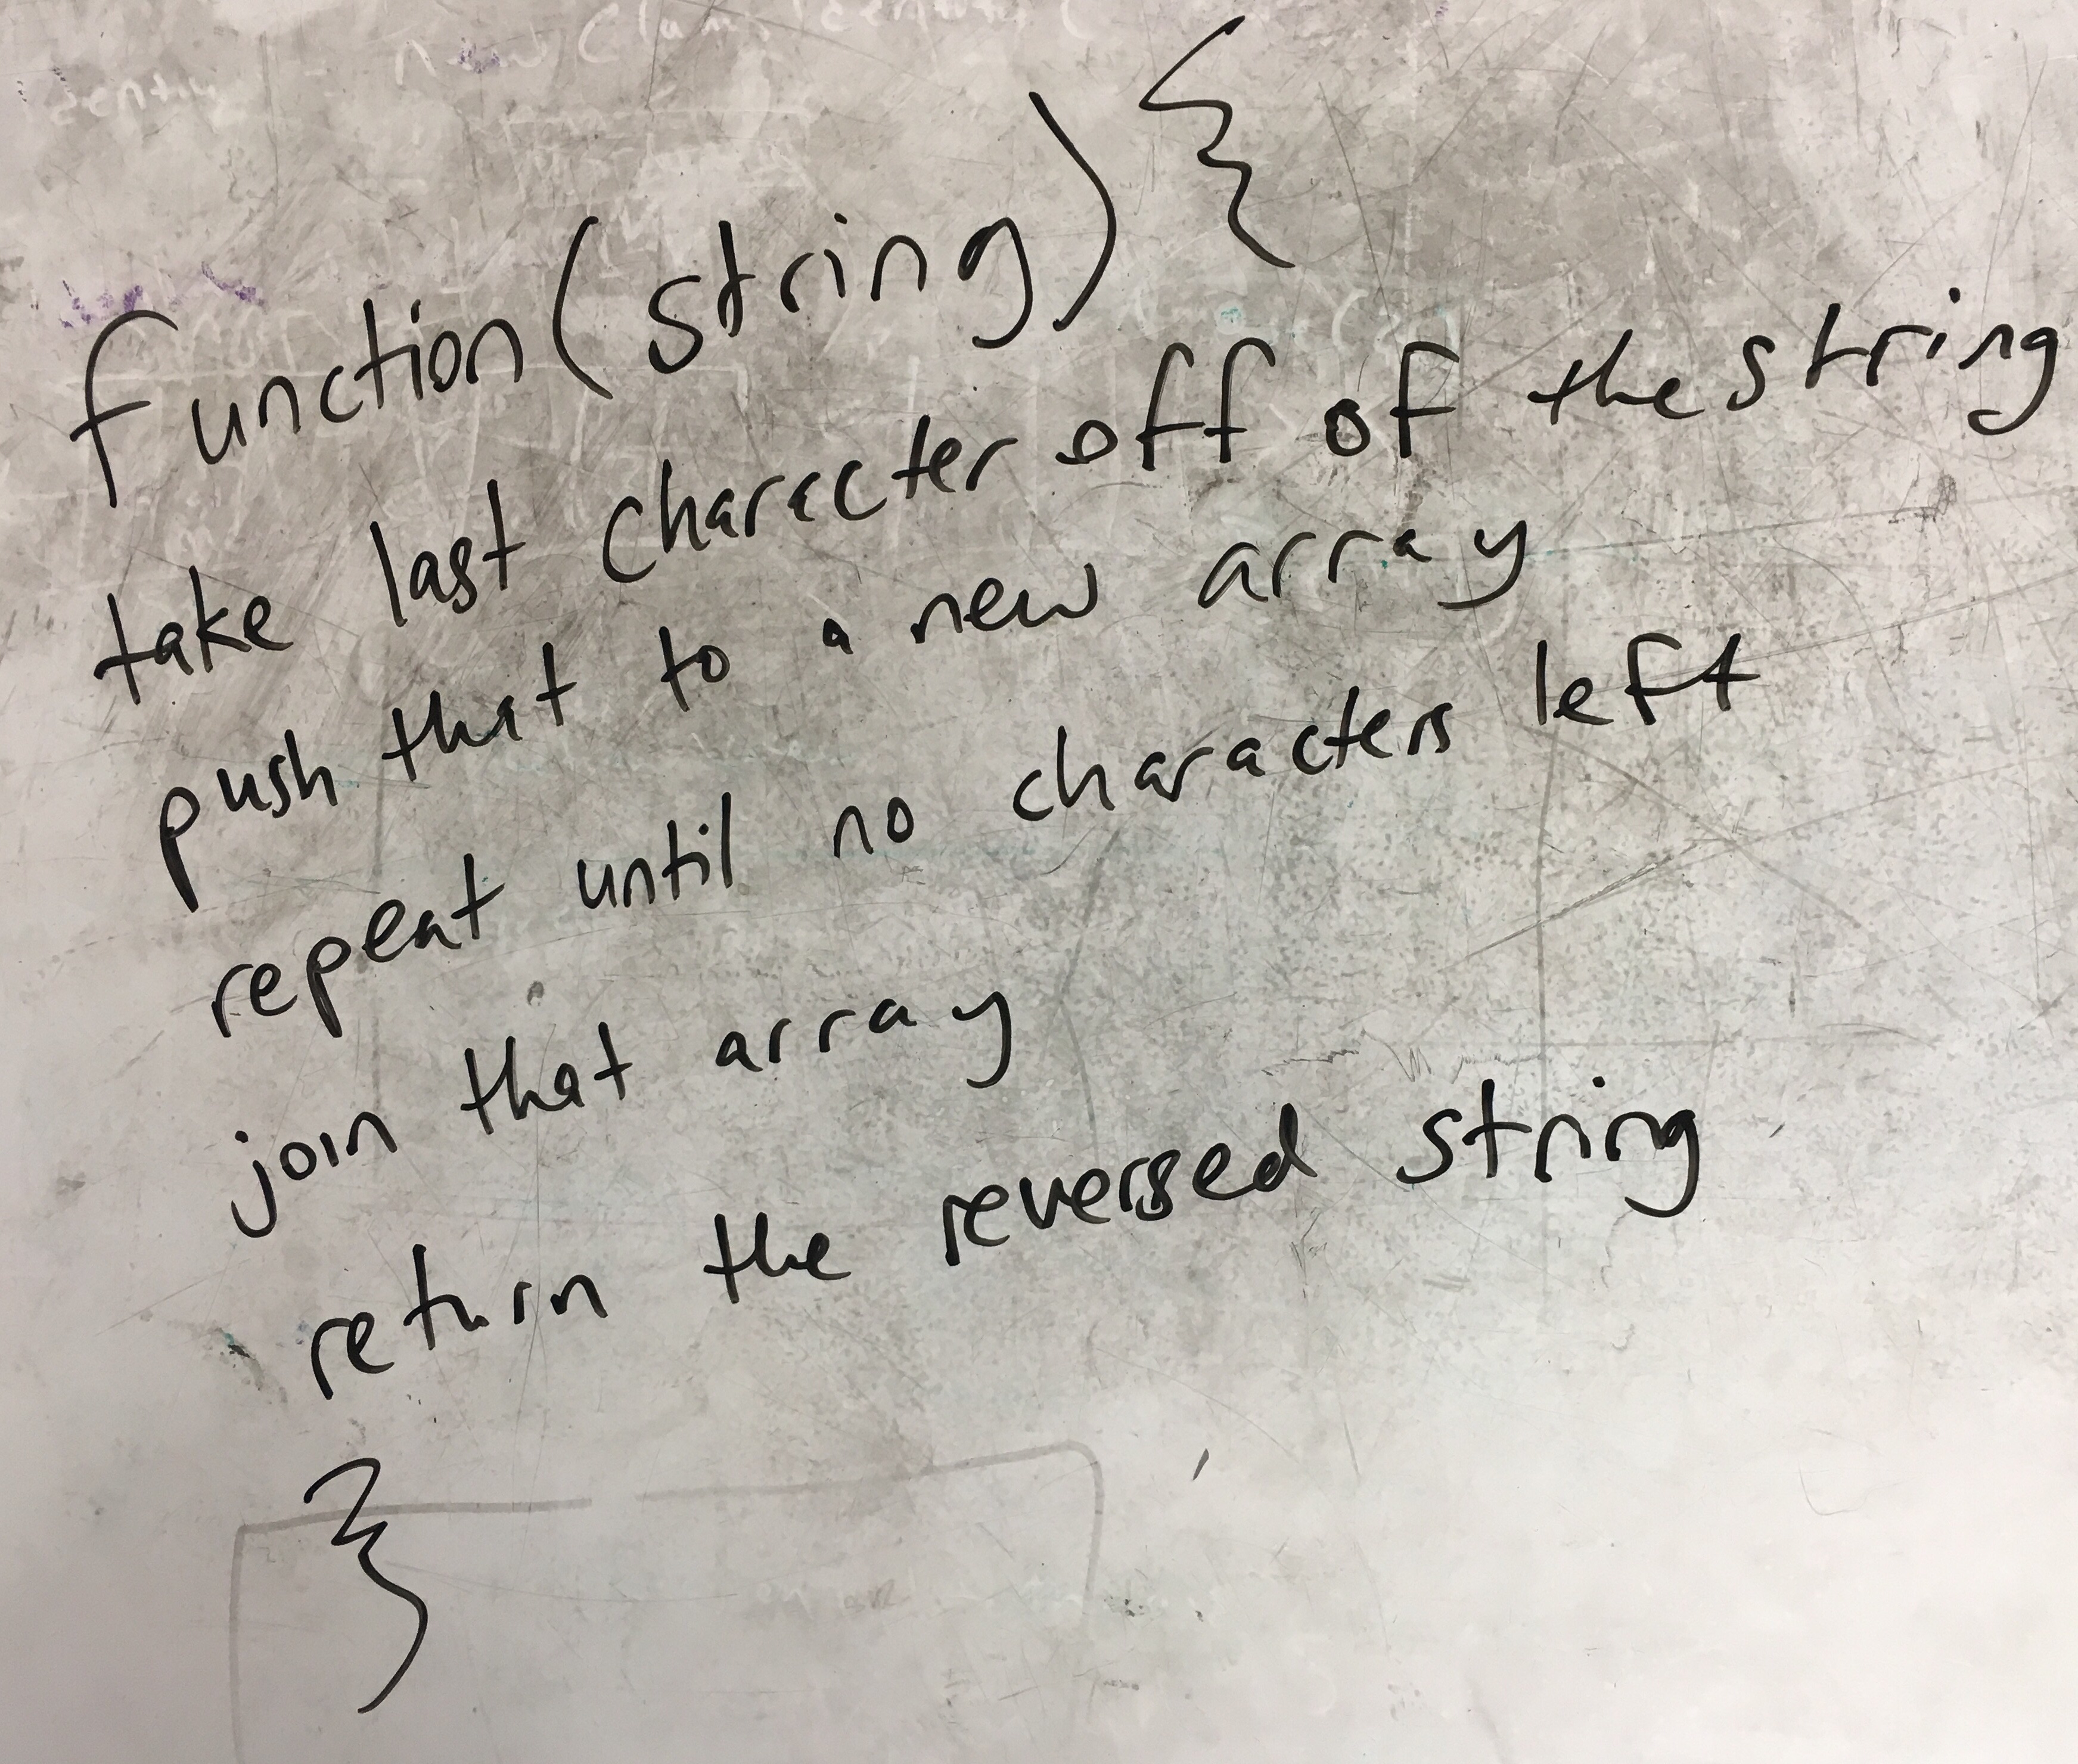 function(string){
take last character off of the string
push that to a new array
repeat until no characters left
join that array
return the reversed string
}